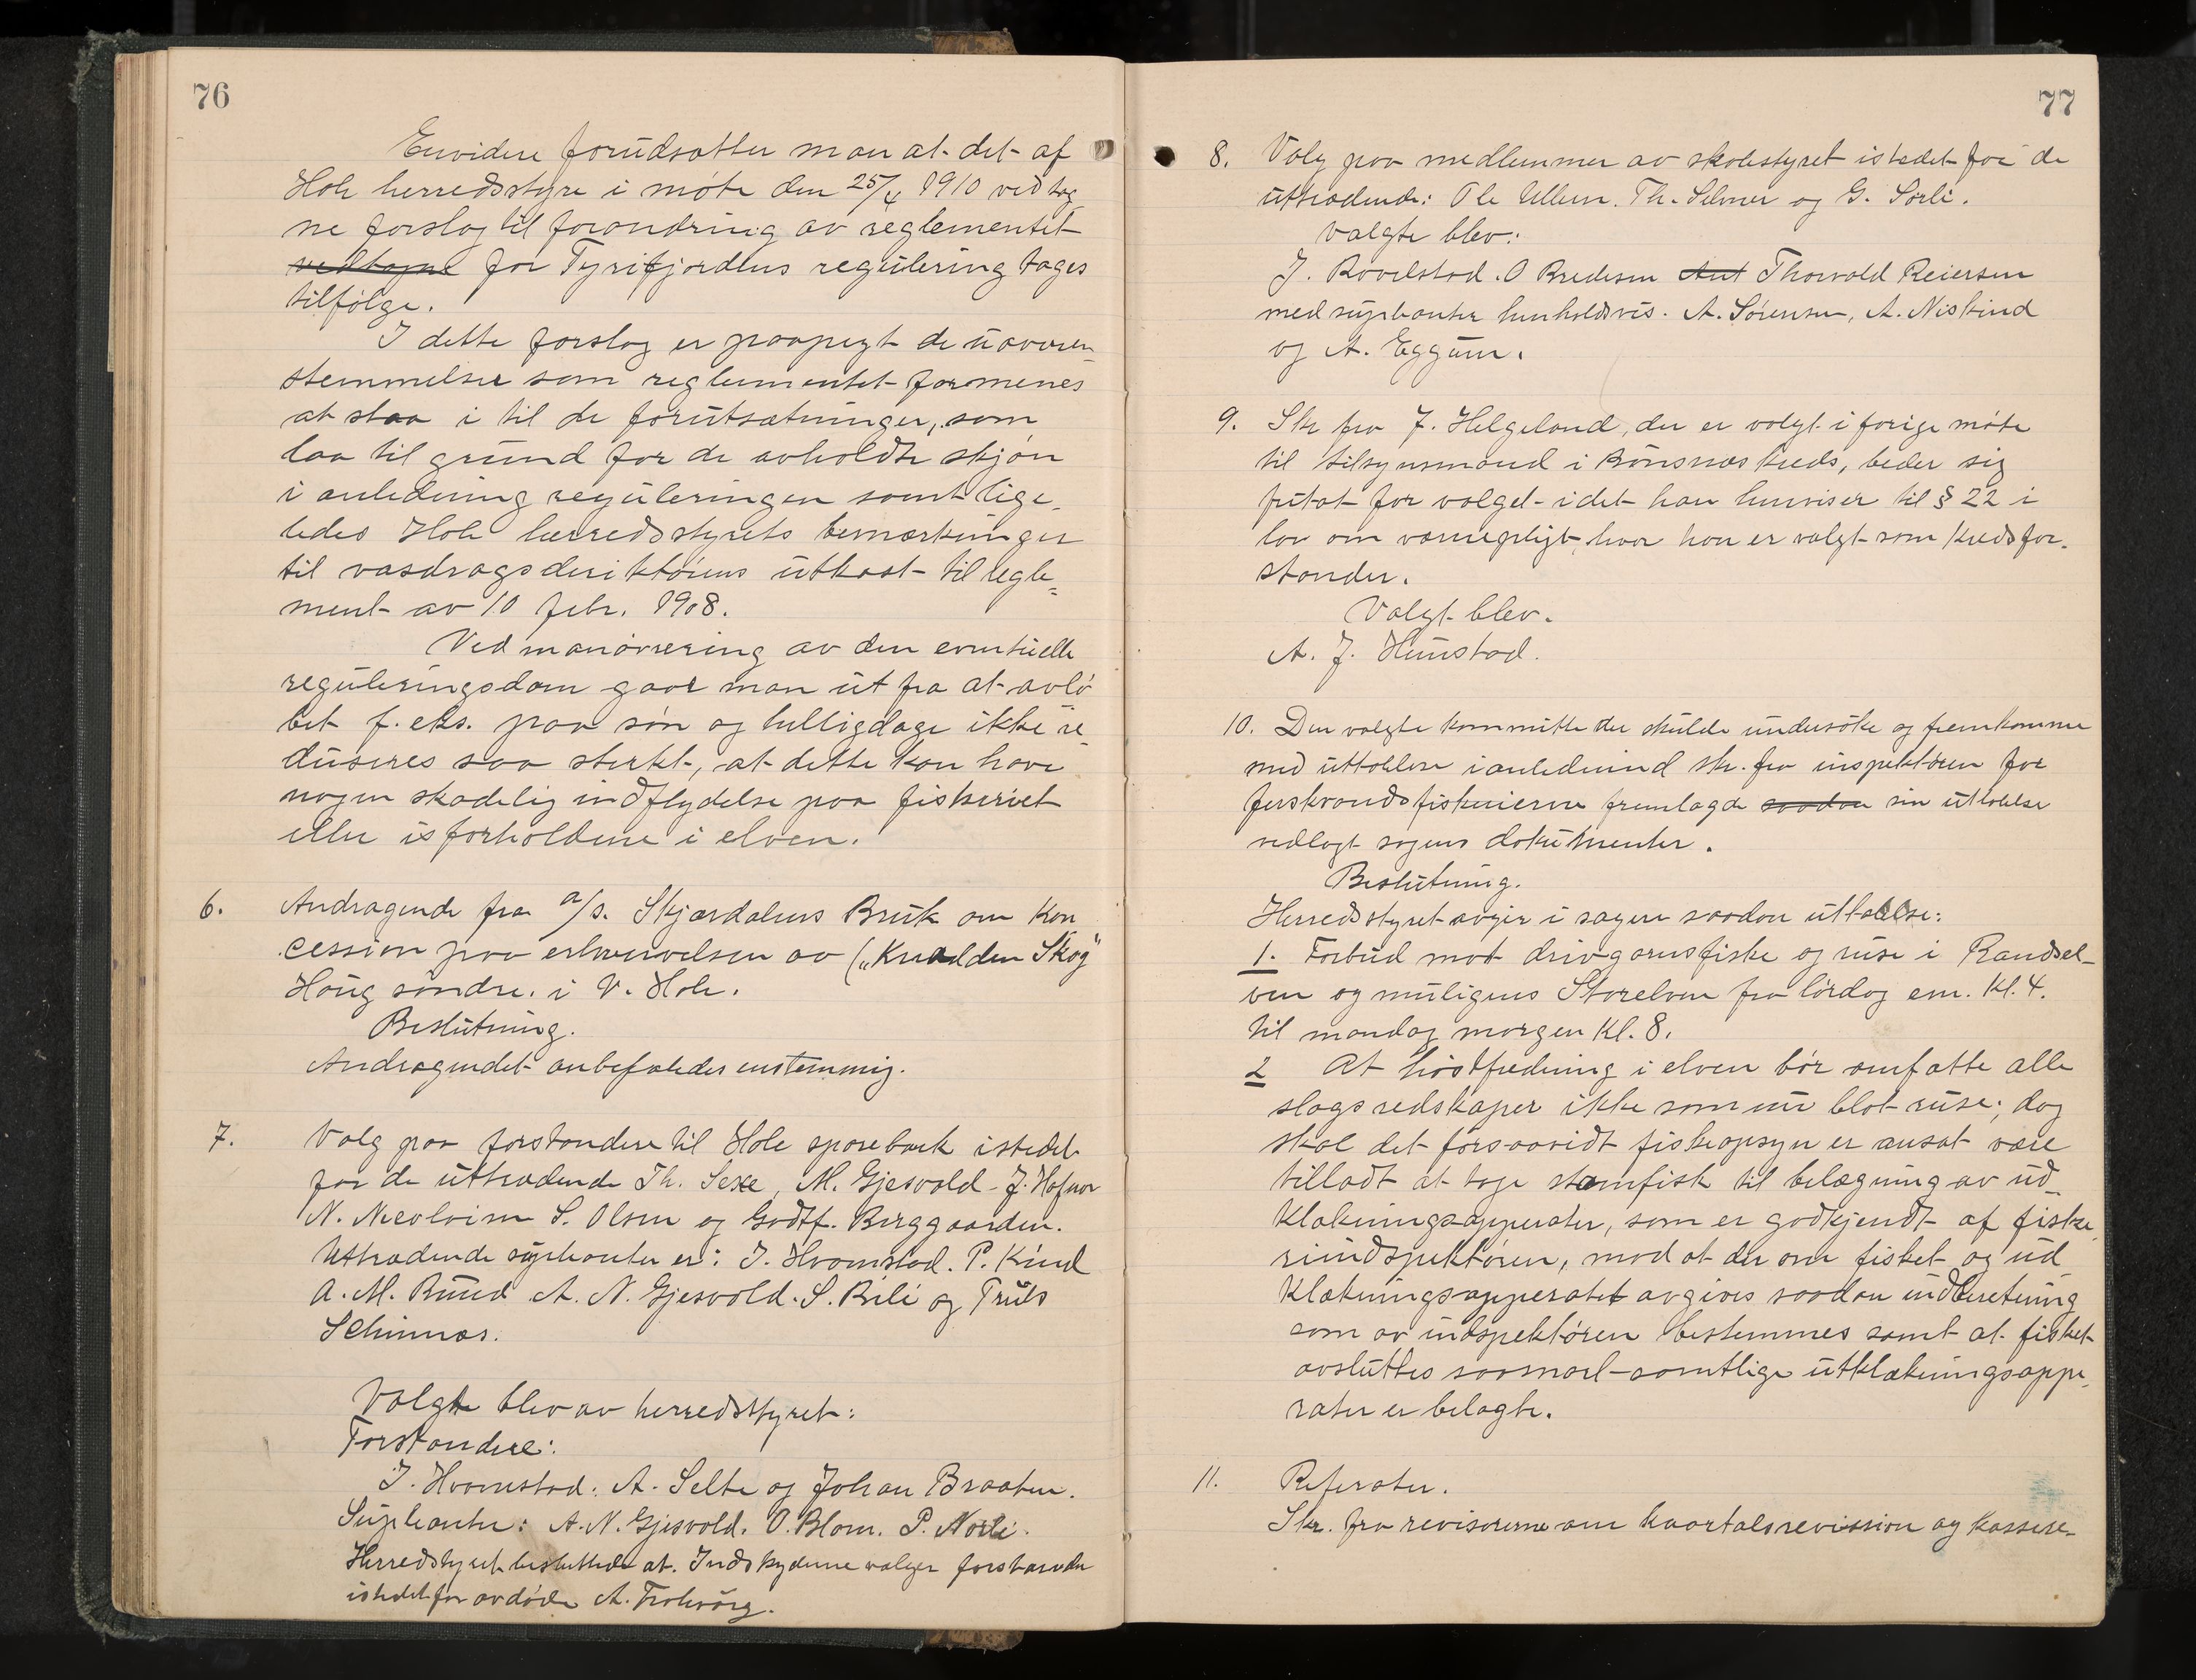 76
Envidere forudsætter man at det af
Hole herredsstyre i møte den 25/4 1910 vedtag
ne forslag til forandring av reglementet
vedtagne for Tyrifjordens regulering tages
tilfølge.
I dette forslag er paapegt de uoveren-
stemmelser som reglementet formenes
at staa i til de forutsætninger, som
laa til grund for de avholdte skjøn
i anledning reguleringen samt lige-
ledes Hole herredsstyrets bemærkninger
til vasdragsdiriktørens utkast til regle=
ment av 10 febr. 1908.
Ved manøvrering av den eventuelle
reguleringsdam gaar man ut fra at avlø
bet f. eks. paa søn og helligdage ikke re-
duseres saa sterkt, at dette kan have
nogen skadelig indflydelse paa fiskeriet
eller isforholdene i elven.
6. Andragende fra a/s. Skjærdalens Bruk om kon
cession paa erhvervelsen av („Knælden Skog"
Houg søndre. i V. Hole.
Beslutning.
Andragendet anbefaledes enstemmig.
7. Valg paa forstandere til Hole sparebank istedet
for de uttrædende Th. Sexe, M. Gjesvold - J. Hafnor
N. Nicolaisen S. Olsen og Godtf. Berggaarden.
Uttrædende suplianter er: I. Hvamstad. P. Kind
A. M. Ruud A. N. Gjesvold. S. Bili og Truls
Selmnæs.
Valgte blev av herredsstyret:
Forstandere:
I. Hvamstad. A. Selte og Johan Braaten.
Suplianter: A. N. Gjesvold. O. Blom. P. Norli.
Herredstyret besluttede at. Indskyderne vælger forstander
istedet for avdøde A. Frohaug.
77
8. Valg paa medlemmer av skolestyret istedet for de
uttrædende: Ole Ullern. Th. Selmer og G. Sørli.
Valgte blev:
J. Rovelstad. O Bredesen Ant Thorvald Reiersen
med suplianter henholdsvis. A. Sørensen, A. Niskind
og A. Eggum.
9. Skr fra J. Helgeland, der er valgt i forige møte
til tilsynsmand i Bønsnæs kreds, beder sig
fritat for valget idet han henviser til § 22 i
lov om værnepligt, hvor han er valgt som kredsfor-
stander.
Valgt blev.
A. J. Hunstad.
10. Den valgte kommitte der skulde undersøke og fremkomme
med uttalelse i anledning skr. fra inspektøren for
ferskvandsfiskerierne fremlagde saadan sin uttalelse
vedlagt sagens dokumenter.
Beslutning.
Herredsstyret avgir i sagen saadan uttalelse:
1. Forbud mot drivgarnsfiske og ruse i Randsel-
ven og muligens Storelven fra lørdag em. Kl. 4.
til mandag morgen Kl. 8.
2 At høstfredning i elven bør omfatte alle
slags redskaper ikke som nu blot ruse; dog
skal det forsaavidt fiskeopsyn er ansat være
tilladt at tage stamfisk til belægning av ud-
klækningsapperater, som er godkjendt af fiske-
riindspektøren, mod at der om fisket og ud
klækningsapperatet avgives saadan indberetning
som av indspektøren bestemmes samt at fisket
avsluttes saasnart samtlige utklækningsappe-
rater er belagte.
11. Referater.
Skr. fra revisorerne om kvartalsrevission og kassere-